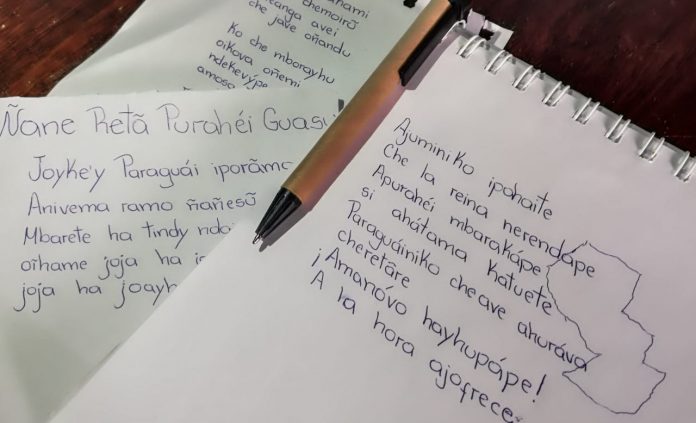 chemoirũ
anga avei
che jave oñandu
Ko che mborayhu
oikova oñemi
ndekevýpe
Ñane Retã Purahéi Guasu
Joyke'y Paraguái iporãma
Anivema ramo ñañesũ
Mbarete ha tindy
oĩhame joja ha
joja ha joayh
Ajuminiko ipohaite
Che la reina nerendápe
Apurahéi mbarakápe
si ahátama katuete
Paraguáiniko cheave ahuráva
cheretãre
¡Amanóvo hayhupápe!
A la hora ajofrece